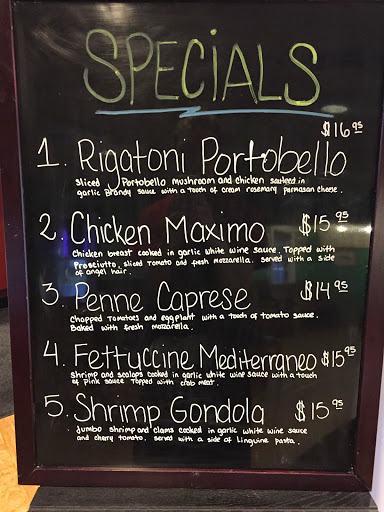 SPECIALS
$16.95
1. Rigatoni Portobello
Sliced Portobello mushroom and chicken sauteed in
garlic Brandy sauce with a touch of cream rosemary parmasan cheese.
2. Chicken Maximo $15.95
Chicken breast cooked in garlic white wine sauce. Topped with
Prosciutto, sliced tomato and fresh mozzarella. served with a side
of angel hair.
3. Penne Caprese $14.95
Chopped tomatoes and eggplant with a touch of tomato sauce.
Baked with fresh mozzarella.
4. Fettuccine Mediterraneo $15.95
Shrimp and scalops cooked in garlic white wine sauce with a touch
of pink sauce topped with crab meat.
5. Shrimp Gondola $15.95
Jumbo shrimp and clams cooked in garlic white wine sauce
and cherry tomato. served with a side of Linguine pasta.